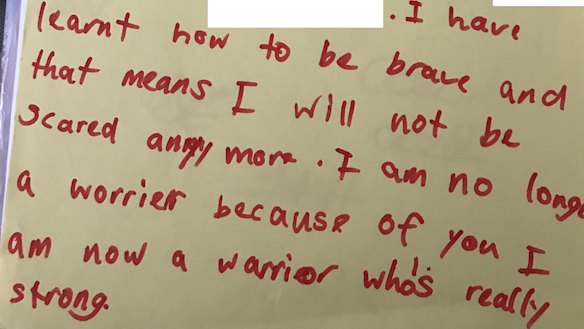 . I have
learnt how to be brave and
that means I will not be
scared anymy more. I am no longe
a worrier because of you I
am now a warrior who's really
strong.